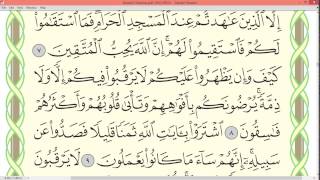 إِلَّا الَّذِينَ عَاهَدتُّمْ عِندَ الْمَسْجِدِ الْحَرَامِ فَمَا اسْتَقَامُوا
لَكُمْ فَاسْتَقِيمُوا لَهُمْ إِنَّ اللَّهَ يُحِبُّ الْمُتَّقِينَ ٧
كَيْفَ وَإِن يَظْهَرُوا عَلَيْكُمْ لَا يَرْقُبُوا فِيكُمْ إِلًّا وَلَا
ذِمَّةً يُرْضُونَكُم بِأَفْوَاهِهِمْ وَتَأْبَىٰ قُلُوبُهُمْ وَأَكْثَرُهُمْ
فَاسِقُونَ ٨ اشْتَرَوْا بِآيَاتِ اللَّهِ ثَمَنًا قَلِيلًا فَصَدُّوا عَن
سَبِيلِهِ إِنَّهُمْ سَاءَ مَا كَانُوا يَعْمَلُونَ ٩ لَا يَرْقُبُونَ